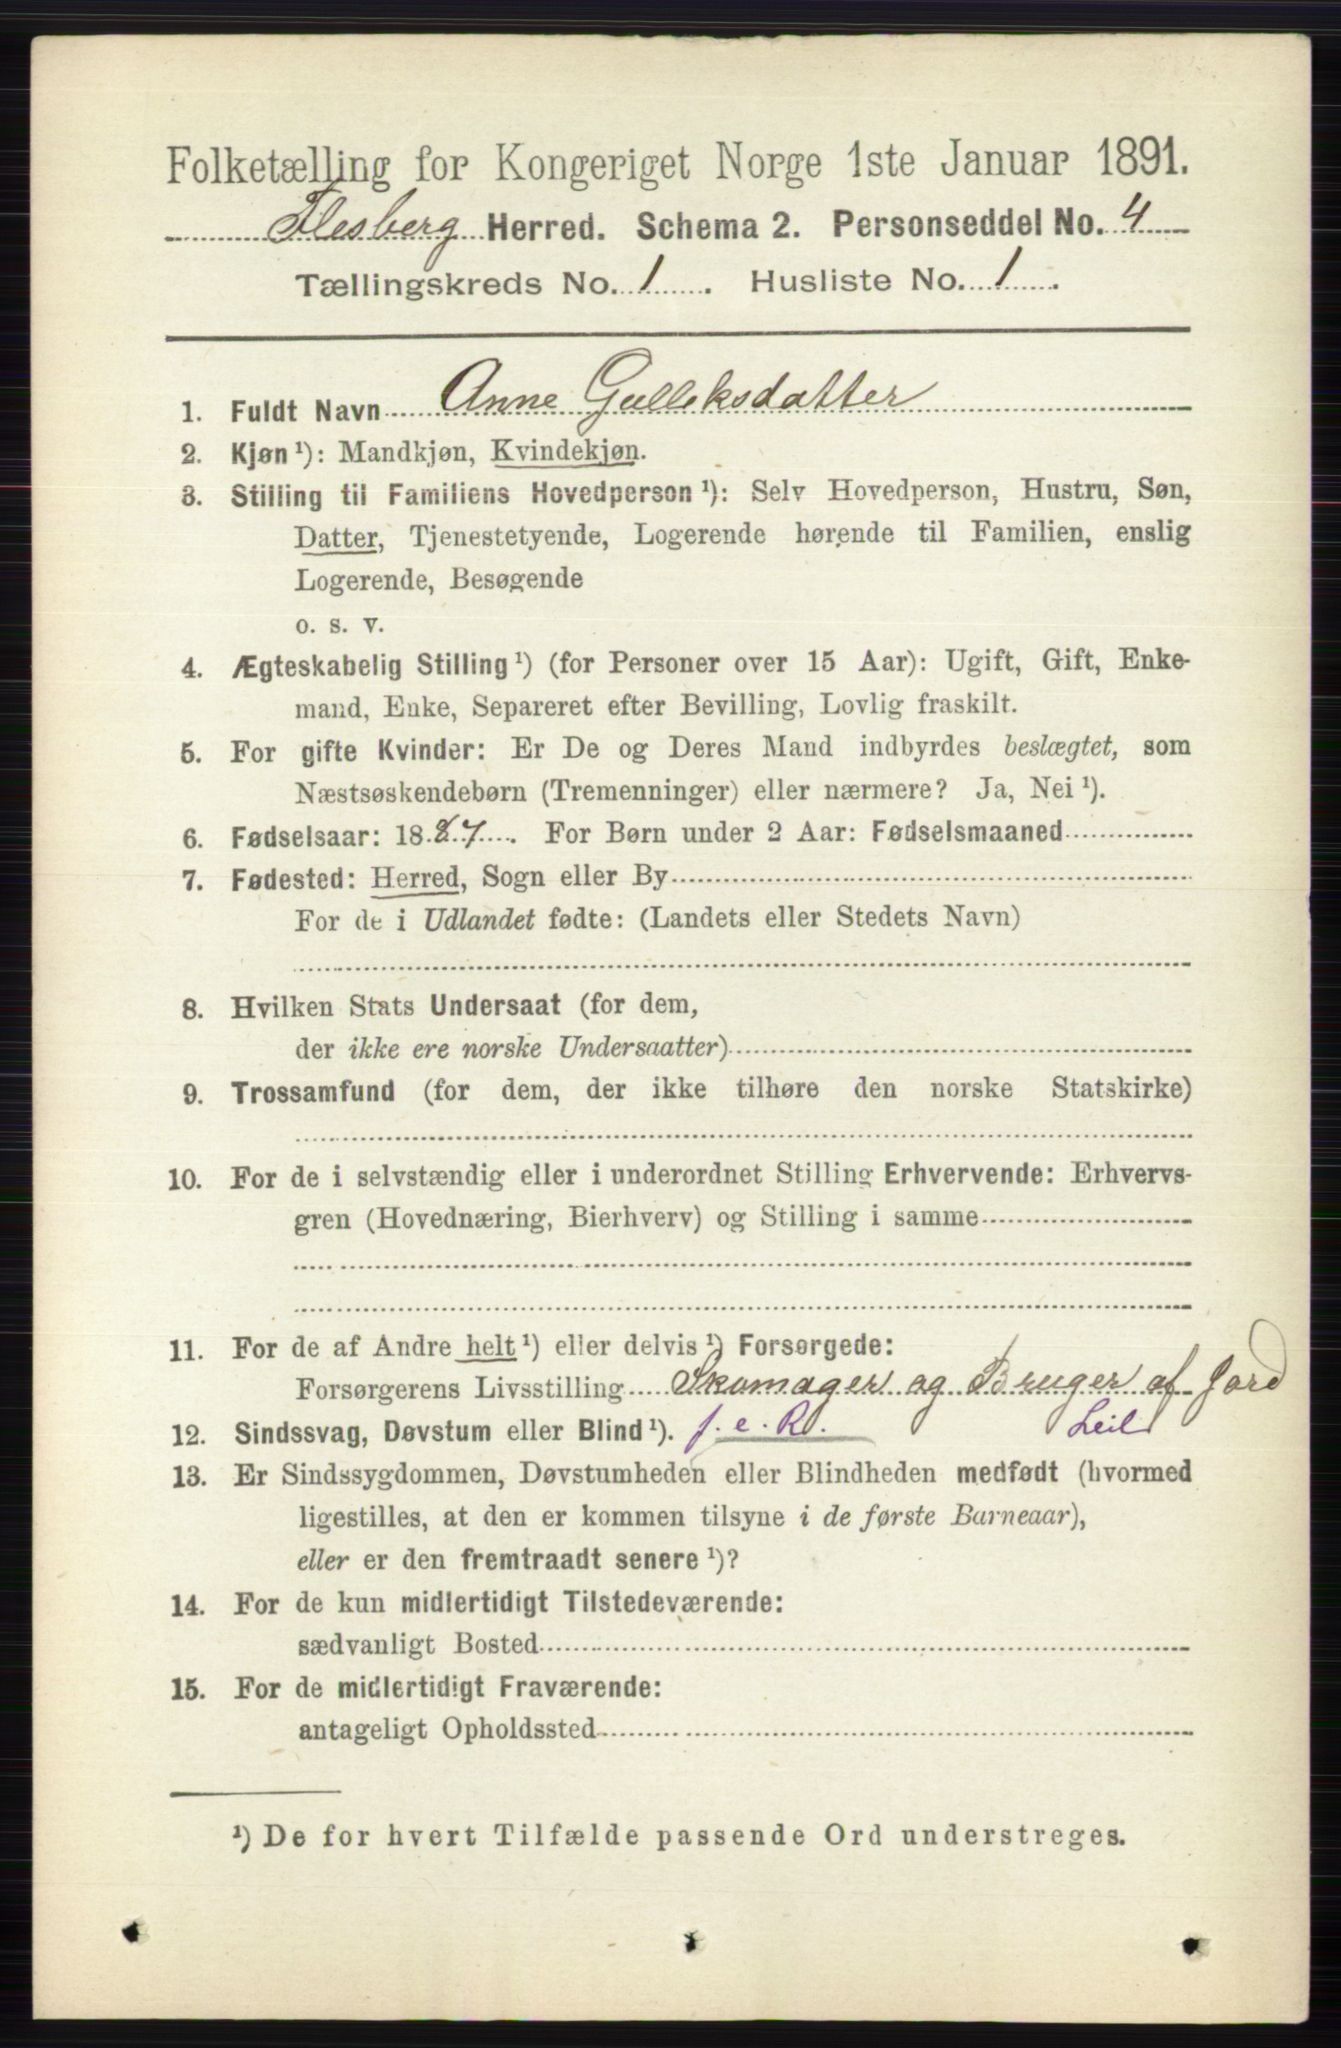 Folketælling for Kongeriget Norge 1ste Januar 1891.
Flesberg Herred. Schema 2. Personseddel No. 4
Tællingskreds No. 1. Husliste No. 1.
1. Fuldt Navn Anne Gulleksdatter
2. Kjøn ¹): Mandkjøn, Kvindekjøn.
3. Stilling til Familiens Hovedperson ¹): Selv Hovedperson, Hustru, Søn,
Datter, Tjenestetyende, Logerende hørende til Familien, enslig
Logerende, Besøgende
o. s. v.
4. Ægteskabelig Stilling ¹) (for Personer over 15 Aar): Ugift, Gift, Enke-
mand, Enke, Separeret efter Bevilling, Lovlig fraskilt.
5. For gifte Kvinder: Er De og Deres Mand indbyrdes beslægtet, som
Næstsøskendebørn (Tremenninger) eller nærmere? Ja, Nei ¹).
6. Fødselsaar: 1887. For Børn under 2 Aar: Fødselsmaaned
7. Fødested: Herred, Sogn eller By
For de i Udlandet fødte: (Landets eller Stedets Navn)
8. Hvilken Stats Undersaat (for dem,
der ikke ere norske Undersaatter)
9. Trossamfund (for dem, der ikke tilhøre den norske Statskirke)
10. For de i selvstændig eller i underordnet Stilling Erhvervende: Erhvervs-
gren (Hovednæring, Bierhverv) og Stilling i samme
11. For de af Andre helt ¹) eller delvis ¹) Forsørgede:
Forsørgerens Livsstilling Skomager og Bruger af Jord
12. Sindssvag, Døvstum eller Blind ¹). f. e. R. Leil
13. Er Sindssygdommen, Døvstumheden eller Blindheden medfødt (hvormed
ligestilles, at den er kommen tilsyne i de første Barneaar),
eller er den fremtraadt senere ¹)?
14. For de kun midlertidigt Tilstedeværende:
sædvanligt Bosted
15. For de midlertidigt Fraværende:
antageligt Opholdssted
¹) De for hvert Tilfælde passende Ord understreges.